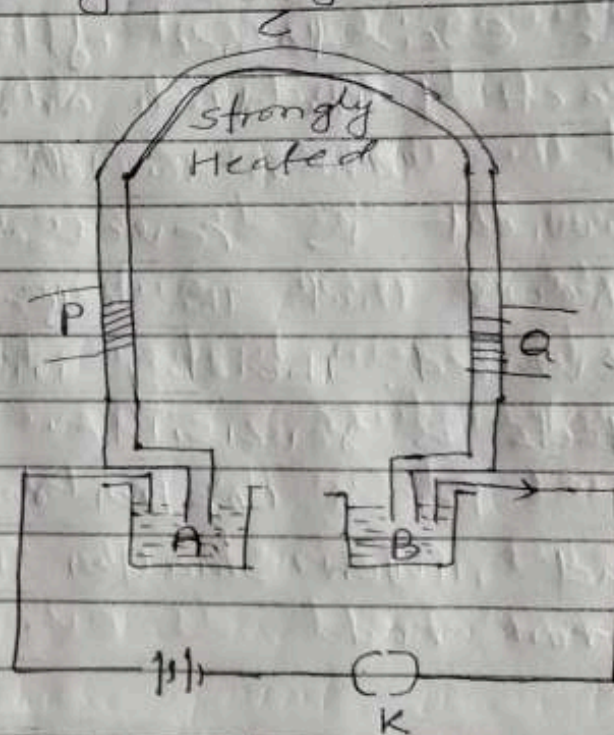 C
Strongly
Heated
P
Q
A
B
K